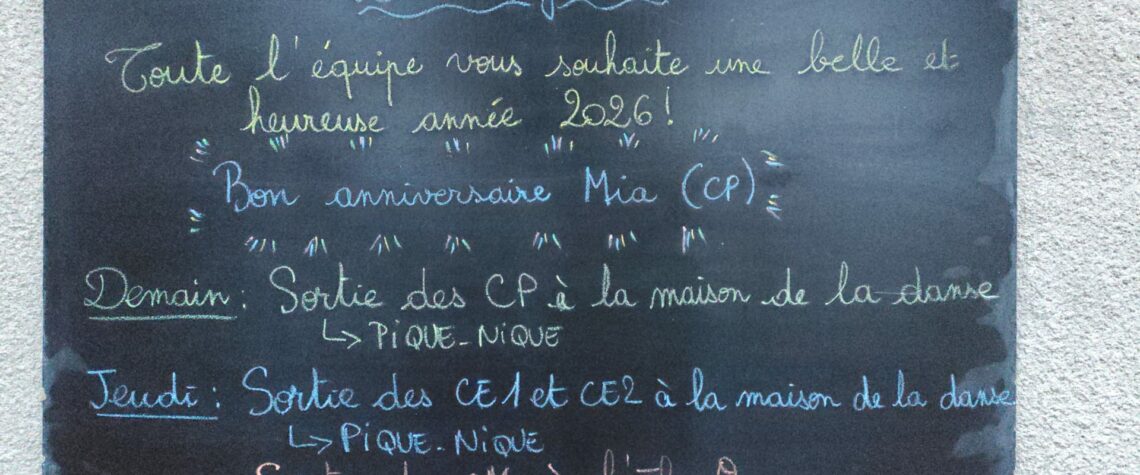 Toute l'équipe vous souhaite une belle et
heureuse année 2026!
Bon anniversaire Mia (CP)
Demain : Sortie des CP à la maison de la danse
↳ PiQUE-NiQUE
Jeudi : Sortie des CE1 et CE2 à la maison de la danse
↳ PiQUE-NiQUE